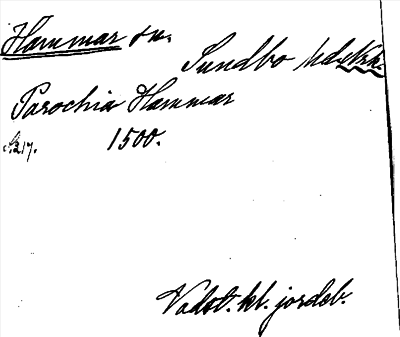 Hammar sn.
Sundbo hd
Parochia Hammar
s. 217. 1500.
Vadst. kl. jordeb.